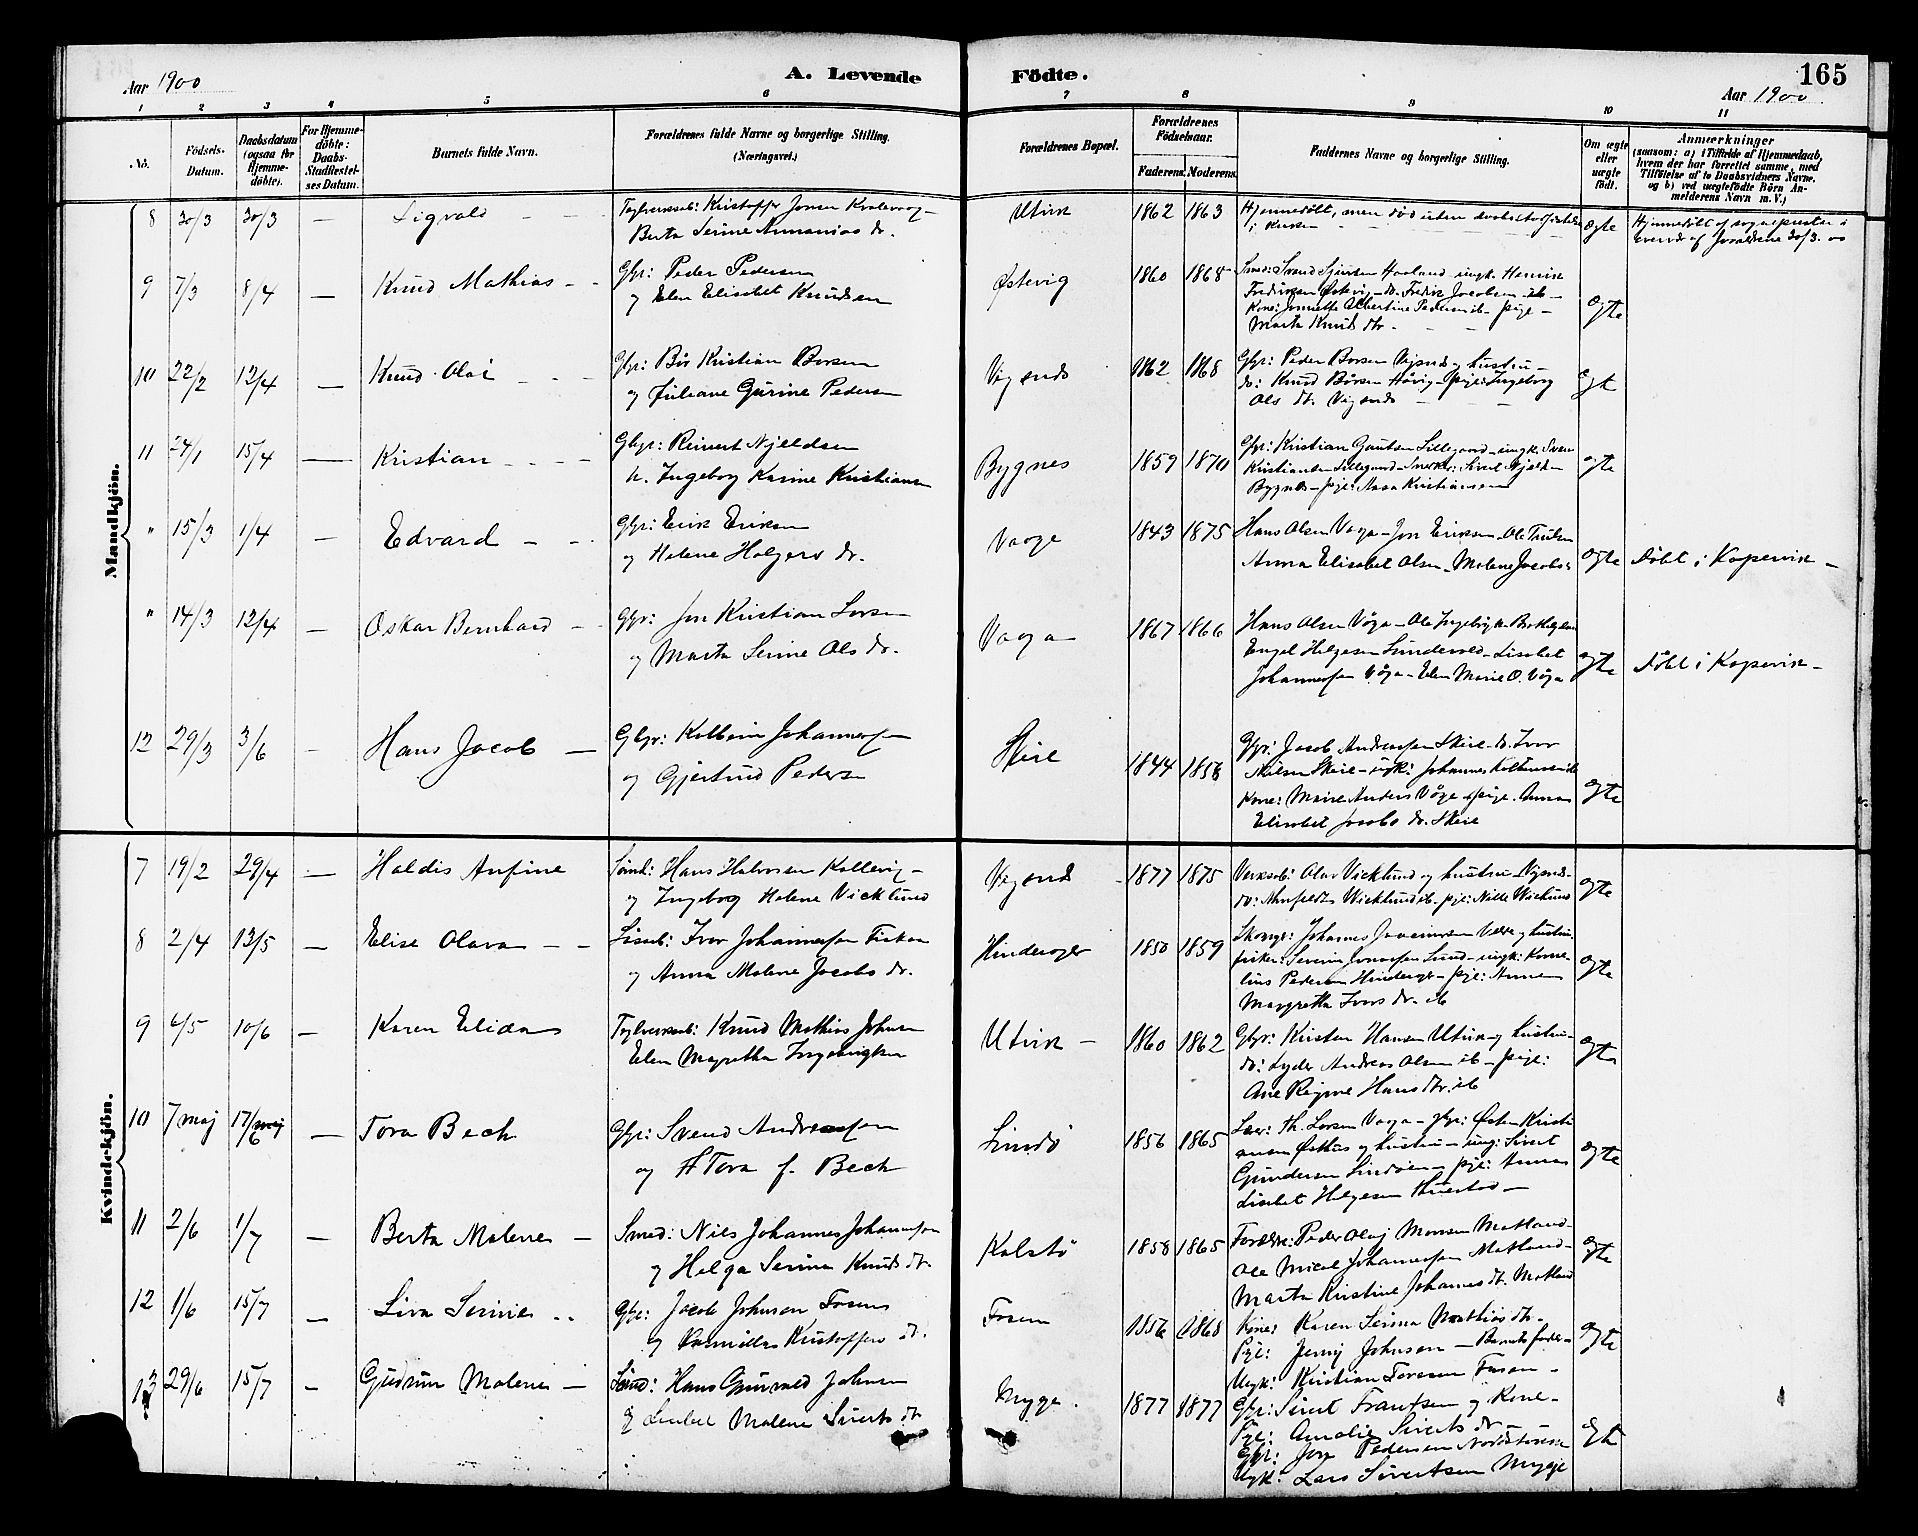 Aar 1900
A. Levende
Födte.
165
Aar 1900
1 2 3 4 5 6 7 8 9 10 11
No.
Födsels-
Datum.
Daabsdatum
(ogsaa for
Hjemme-
döbte).
For Hjemme-
döbte:
Daabs-
Stadfæstel-
ses Datum.
Barnets fulde Navn.
Forældrenes fulde Navne og borgerlige Stilling.
(Næringsvei.)
Forældrenes Bopæl.
Forældrenes
Födselsaar.
Faderens. Moderens.
Faddernes Navne og borgerlige Stilling.
Om ægte
eller
uægte
født.
Anmærkninger
(saasom: a) i Tilfælde af Hjemmedaab,
hvem der har forrettet samme, med
Tilföielse af to Daabsvidners Navne.
og b) ved uægtefödte Börn An-
melderens Navn m. V.)
Mandkjön.
8 30/3 30/3 — Sigvald — Kristoffer Jonsen
Berta Serine Annanias dr.
Utvik 1862 1863
Hjemmedöbt, men död uden
i kirken
ægte
Hjemmedöbt af sognepresten i
af forældrene 30/3 00
9 7/3 8/4 — Knud Mathias - - Gbr: Peder Pedersen
og Elen Elisabet Knudsen
Østevig 1860 1868
Smed: Svend Sjursen Haaland - ungk. Henrik
Fredriksen Østevig - do. Fredrik Jacobsen ib -
Kone: Albertine Pedersen ib - pige -
Marta Knuds dtr. -
ægte
10 22/2 12/4 — Knud Olai - - Gbr: Bår Kristian Borsen
og Juliane Gurine Pedersen
Vigsnds 1862 1868
Gbr: Peder Borsen Vigsnds og hustru -
do: Knud Børsen Håvig - pige: Ingeborg
Ols dt. Vigsnds
Egte
11 24/1 15/4 — Kristian - - - Gbr: Reinert Njeldsen
u. Ingeborg Karine Kristiansen
Bygnes 1859 1870
Gbr: Kristian Gautsen Lillesund - ungk: Sven
Kristiansen Lillesund - Snekker: Sivert Njeld-
Bygnes - pige: Anna Kristiansen
ægte
" 15/3 1/4 — Edvard - - Gbr: Erik Eriksen
og Helene Holgers dr.
Vaage 1843 1875
Hans Olsen Vaga - Jon Eriksen - Ole
Anna Elisabet Olsen - Malene Jacobsd
ægte
Döbt i Kopervik -
" 14/3 12/4 — Oskar Bernhard - Gbr: Jon Kristian Larsen
og Marta Serine Ols dr.
Vaga 1867 1866
Hans Olsen Våga - Ole
Engel Helgesen - Lisabet
Johannesen Våga - Elen Marie O. Våga
ægte
Döbt i Kopervik -
12 29/3 3/6 - Hans Jacob — Gbr: Kolbein Johannesen
og Gjertrud Pedersen
Skeie 1844 1858
Gbr: Jacob Andreassen Skeie - do. Ivar
Nilsen Skeie - ungk: Johannes Kolbeinsen ib
Kone: Marie Anders Våge - pige. Anna
Elisabet Jacobs dr. Skeie
ægte
Kvindekjön.
7 19/2 29/4 — Haldis Anfine Sömd: Hans Halvorsen Kallevig -
og Ingeborg Helene Vicklund
Vigsnds 1877 1875
Verksarb: Olav Vicklund og hustru - Vigsnds -
do: Wicklund ib. pige: Nille Wicklund
ægte
8 2/4 13/5 — Elise Olava - - Ivar Johannesen
og Anna Malene Jacobs dr.
Hinderager 1850 1859
Johannes og hustru.
fisker: Severin Jonassen Sund - ungk: Korne-
lius Pedersen Hinderager - pige: Anna
Margretha Ivars dr. ib
ægte
9 6/5 10/6 — Karen Elida Knud Mathias Johnsen
Elen Magretha Ingebrigtsen
Utvik - 1860 1862
Gbr: Kristen Hansen Utvik og hustru -
do: Lyder Andreas Olsen ib - pige:
Ane Regine Hans dtr. ib
ægte
10 7 maj 17/6 — Tora Bech Gbr: Svend Andreassen
og Tora f. Bech
Lindö 1856 1865
Lær: Th. Larsen Vaga - gbr: Østen Kristi
ansen og hustru - ung: Sivert
Gundersen Lindöen - pige: Anna
Lisabet Helgesen -
ægte
11 2/6 1/7 — Berta Malene - Smed: Nils Johannes Johannesen
og Helga Serina Knuds dr.
Kolstö 1858 1865
Forældre: Peder Olaj Monsen Matland -
Ole Micael Johannesen Matland -
Marta Kristine Johannes dt. Matland
ægte
12 1/6 15/7 — Liva Serine .. Gbr: Jacob Johnsen Fosen
og Kristoffers dt.
Fosen 1856 1868
Kone: Karen Serina Mathias dtr.
Pige: Jenny Johnsen - Barnets fader -
Ungk: Kristian Toresen Fosen -
ægte
13 29/6 15/7 — Gudrun Malene - Sömd: Hans Gunvald Johnsen
og Lisabet Malene Siverts dt
Mygge. 1877 1877
Gbr: Sivert Frantsen og Kone -
Pige: Amalie Siverts dr -
Gbr: Jon Pedersen
Ungk: Lars Sivertsen Mygge
Egte